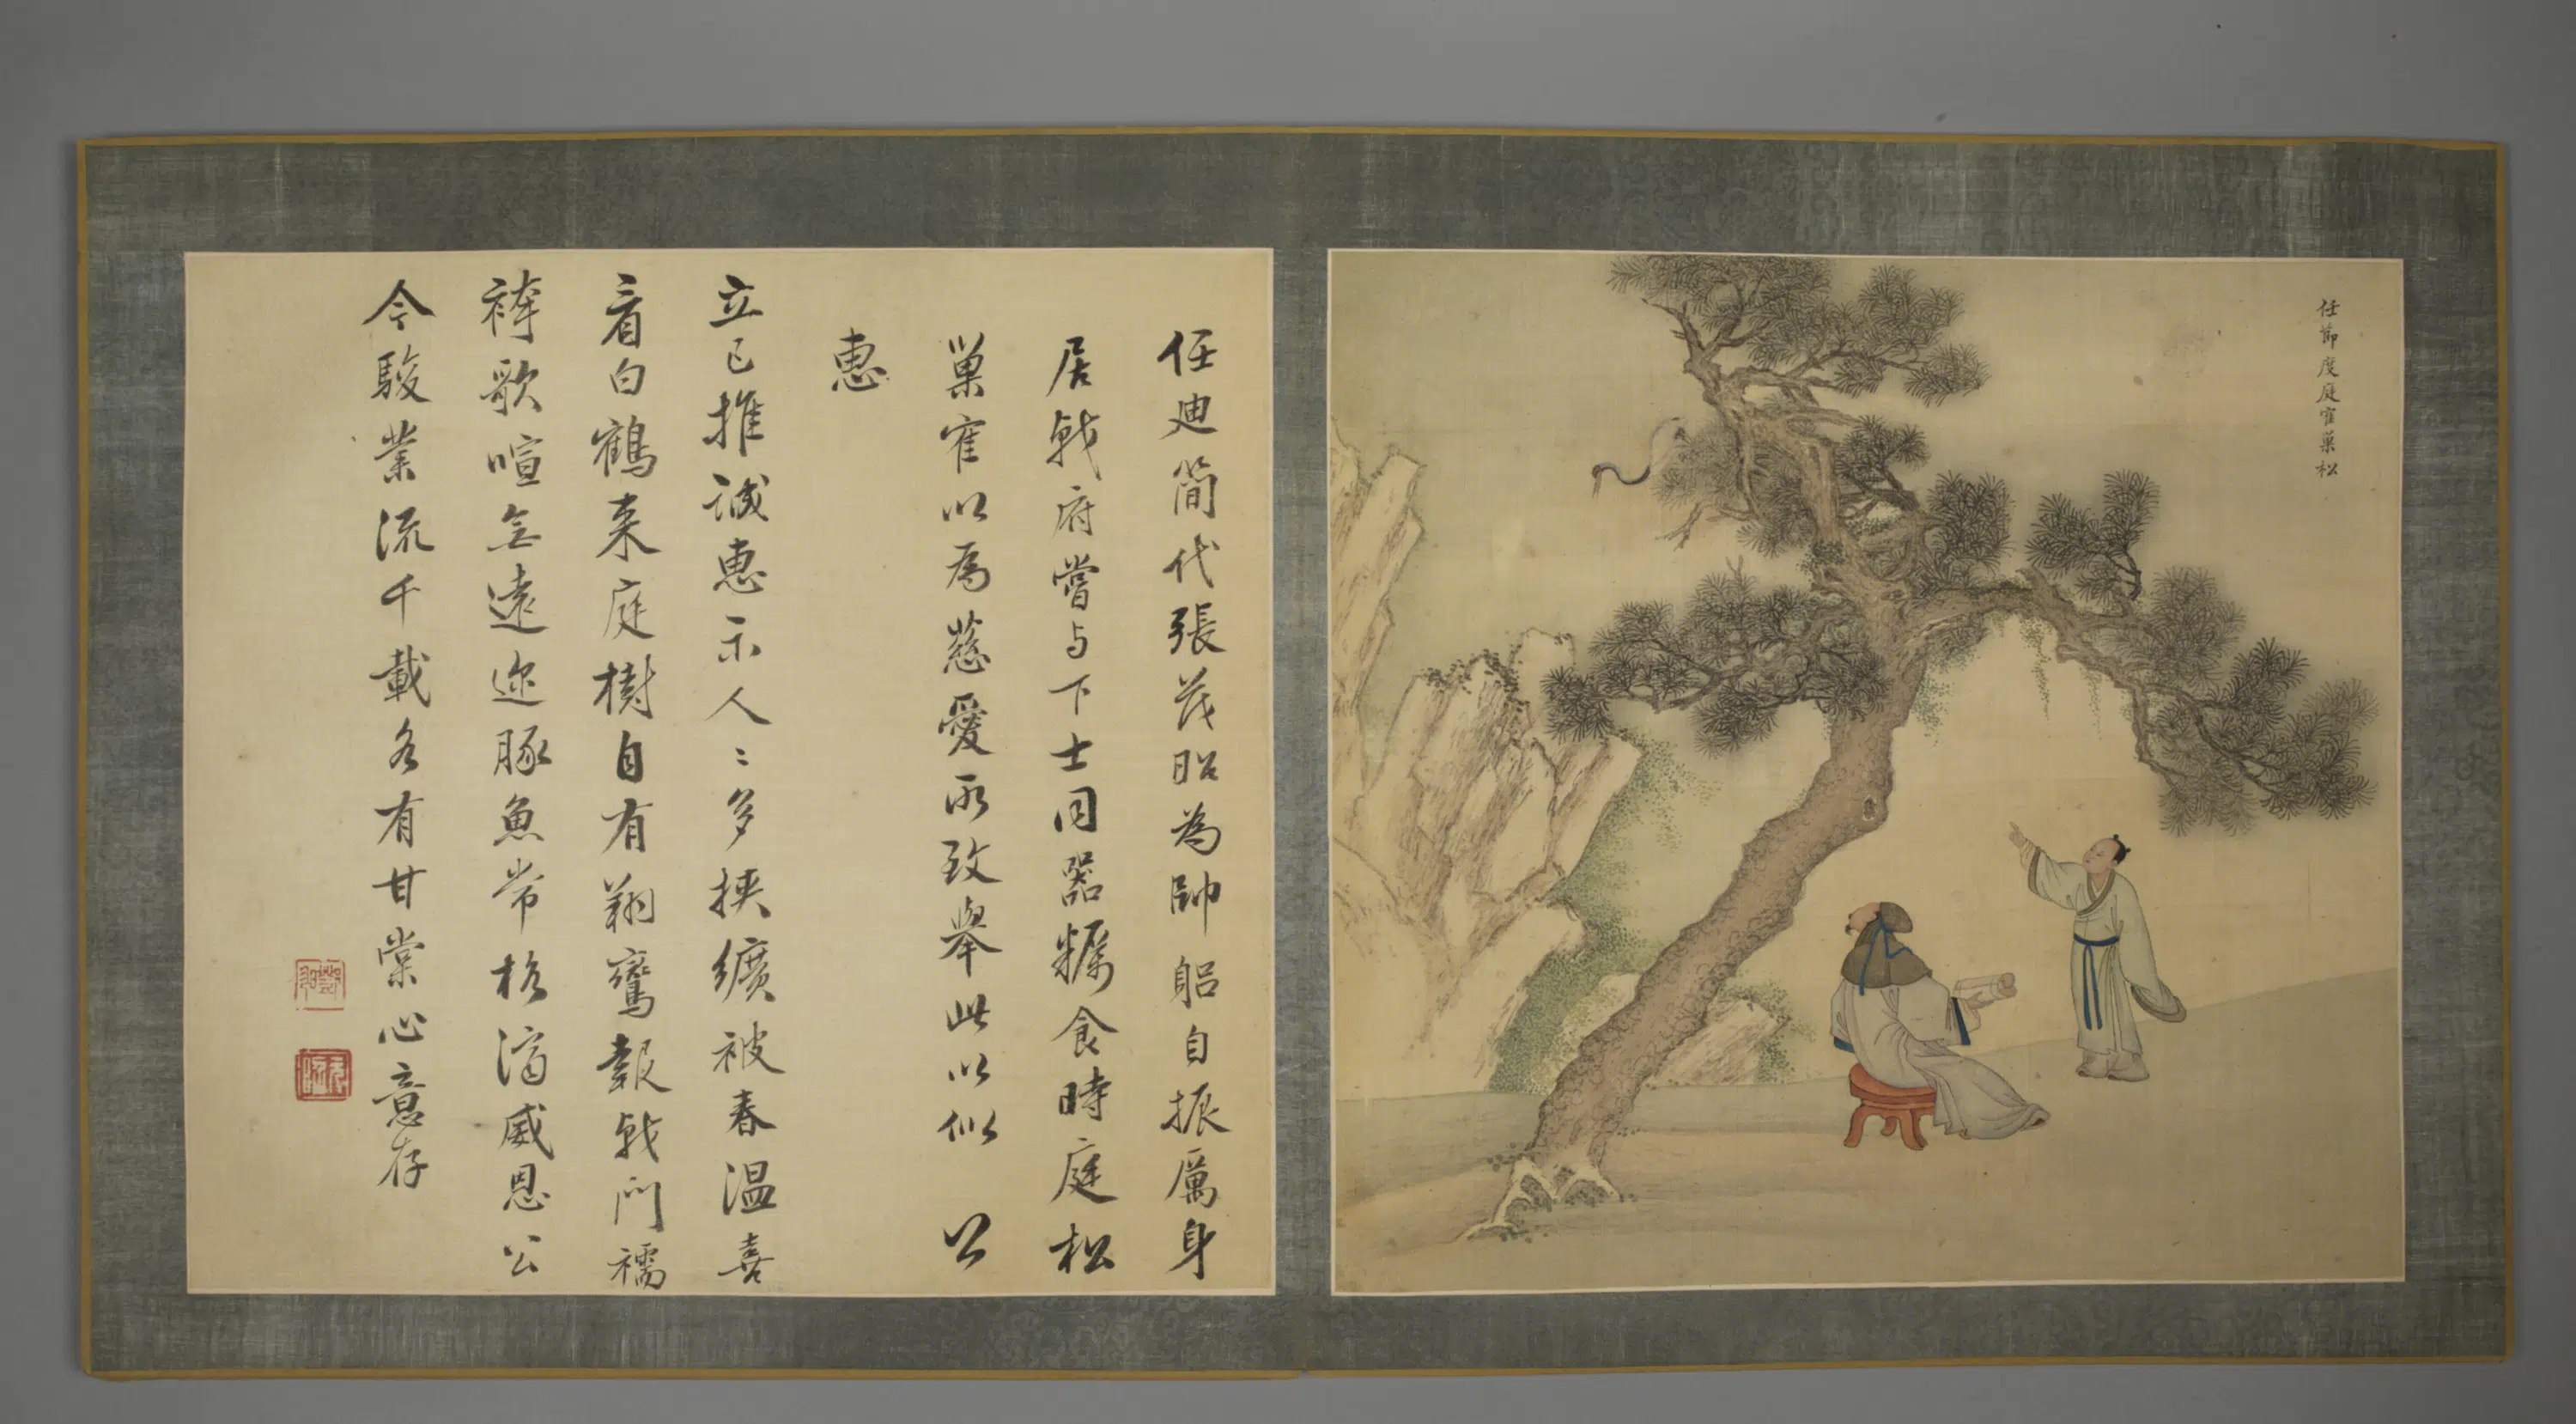 任節度庭寉巢松
任迪簡代張茂昭為帥躳自振厲身
居戟府嘗与下士同器糲食時庭松
巢寉以為慈愛所致舉此以似 公
惠
立已推誠惠示人〻多挾纊被春温喜
看白鶴来庭樹自有翔鸞報戟門襦
袴歌喧無遠迩豚魚常格濟威恩公
今駿業流千載各有甘棠心意存